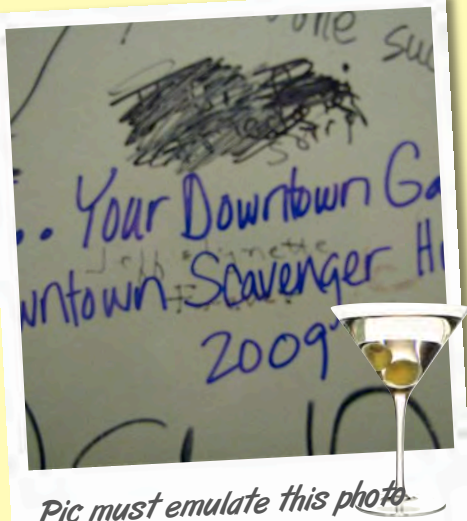 one su
Sorry
.. Your Downtown Ga
Jeff & Lynette
wntown Scavenger H
2009"
Pic must emulate this photo